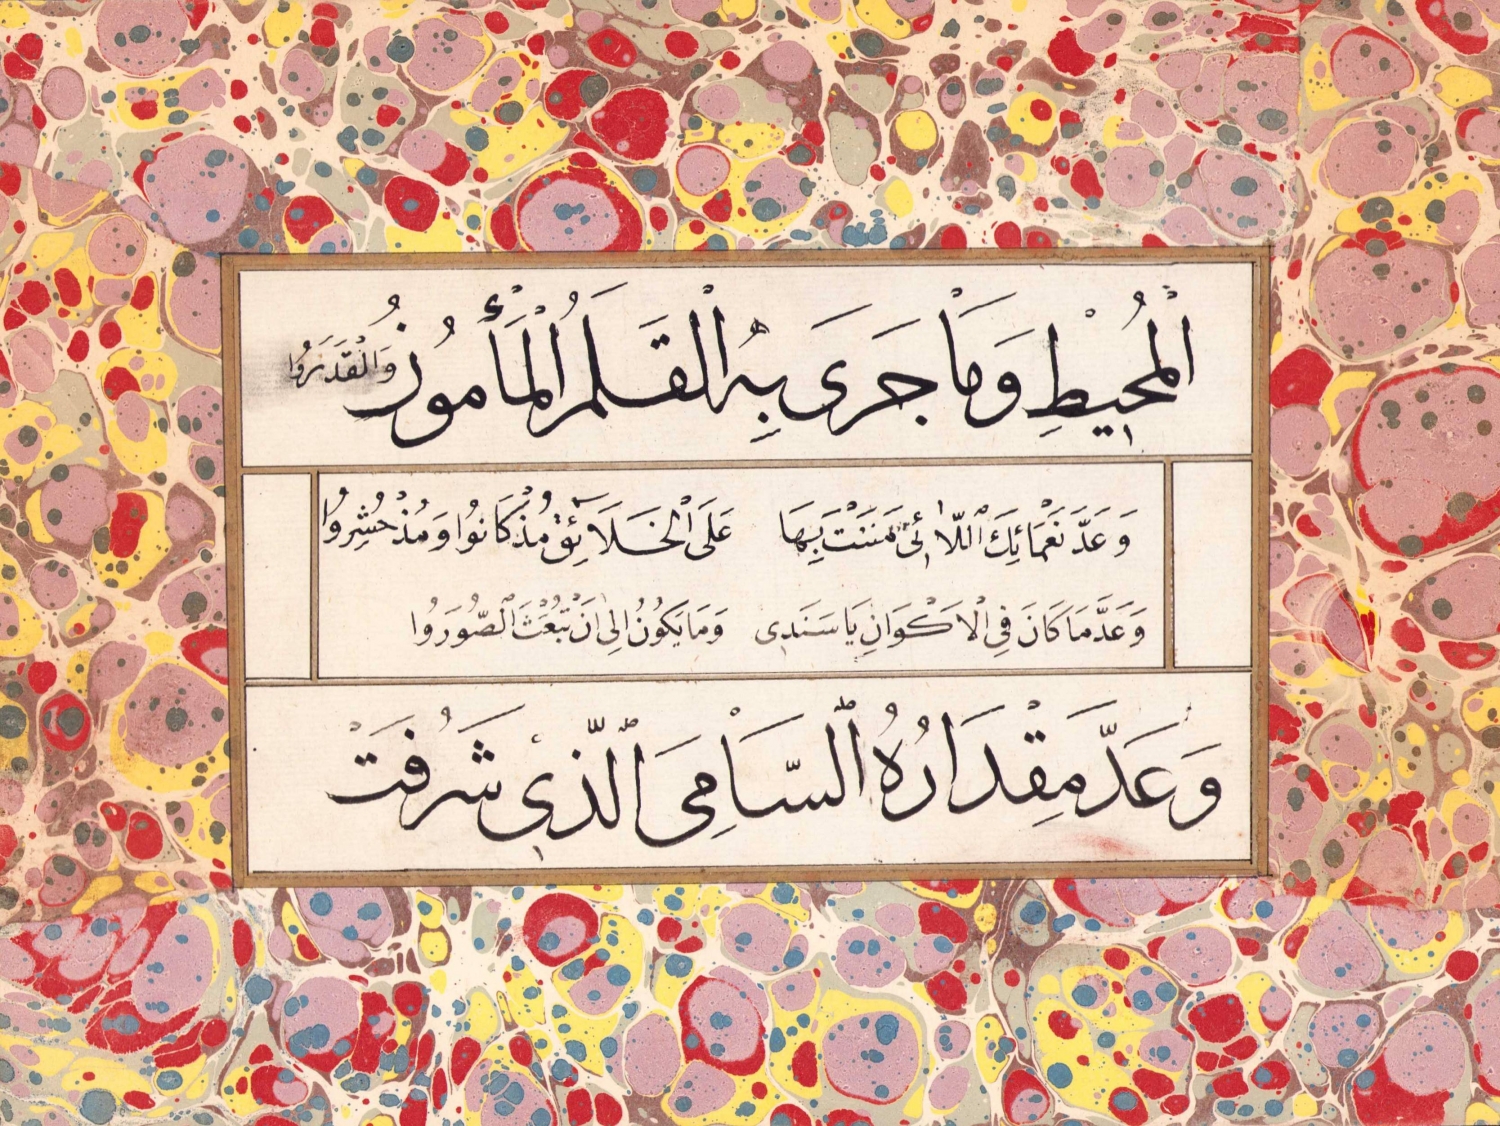 الْمُحِيْطِ وَمَا جَرَى بِهِ الْقَلَمُ الْمَأْمُوْرُ وَالْقَدَرُوا
وَعَدَّ نَعْمَائِكَ اللّائى مَنَنْتَ بِهَا عَلَى الْخَلَائِقِ مُذْكَانُوا وَمُذْ حُشِرُوا
وَعَدَّ مَا كَانَ فِى الْاَكْوَانِ يَا سَنَدِى وَمَا يَكُوْنُ اِلٰى اَنْ تُبْعَثَ الصُّوَرُوا
وَعَدَّ مِقْدَارُهُ السَّامِى الَّذِى شَرُفَتْ